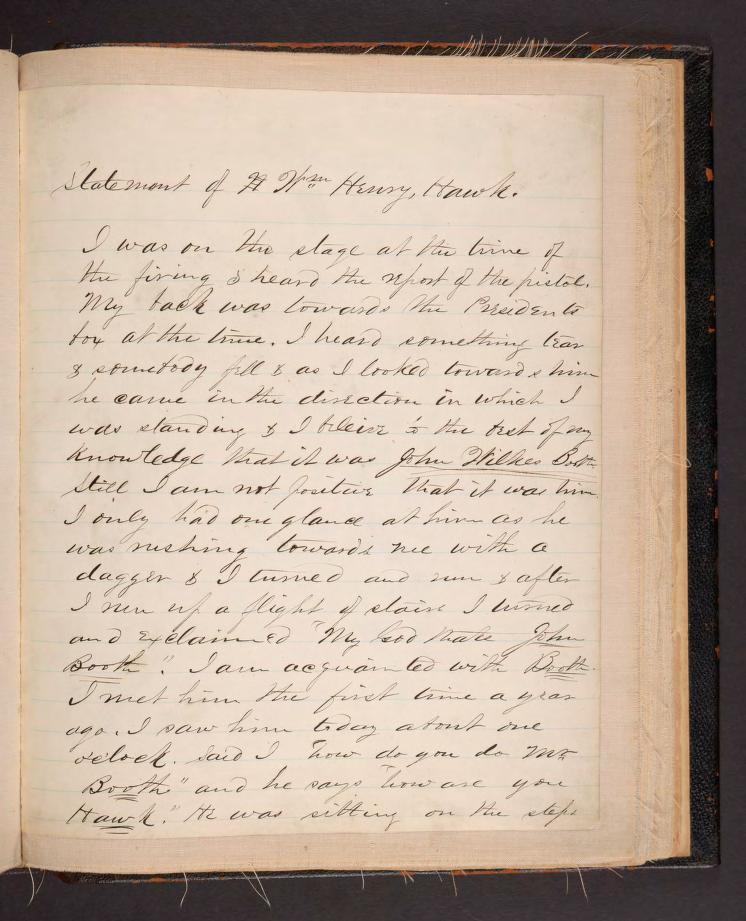 Statement of H Wm Henry, Hawk.
I was on the stage at the time of
the firing & heard the report of the pistol.
My back was towards the Presidents
box at the time. I heard something tear
& somebody fell & as I looked towards him
he came in the direction in which I
was standing & I beleive to the best of my
Knowledge that it was John Wilkes Booth
Still I am not positive that it was him
I only had one glance at him as he
was rushing towards me with a
dagger & I turned and run & after
I run up a flight of stairs I turned
and exclaimed "My God thats John
Booth". I am acquainted with Booth.
I met him the first time a year
ago. I saw him today about one
o'clock. Said I "how do you do Mr
Booth" and he says "how are you
Hawk." He was sitting on the steps